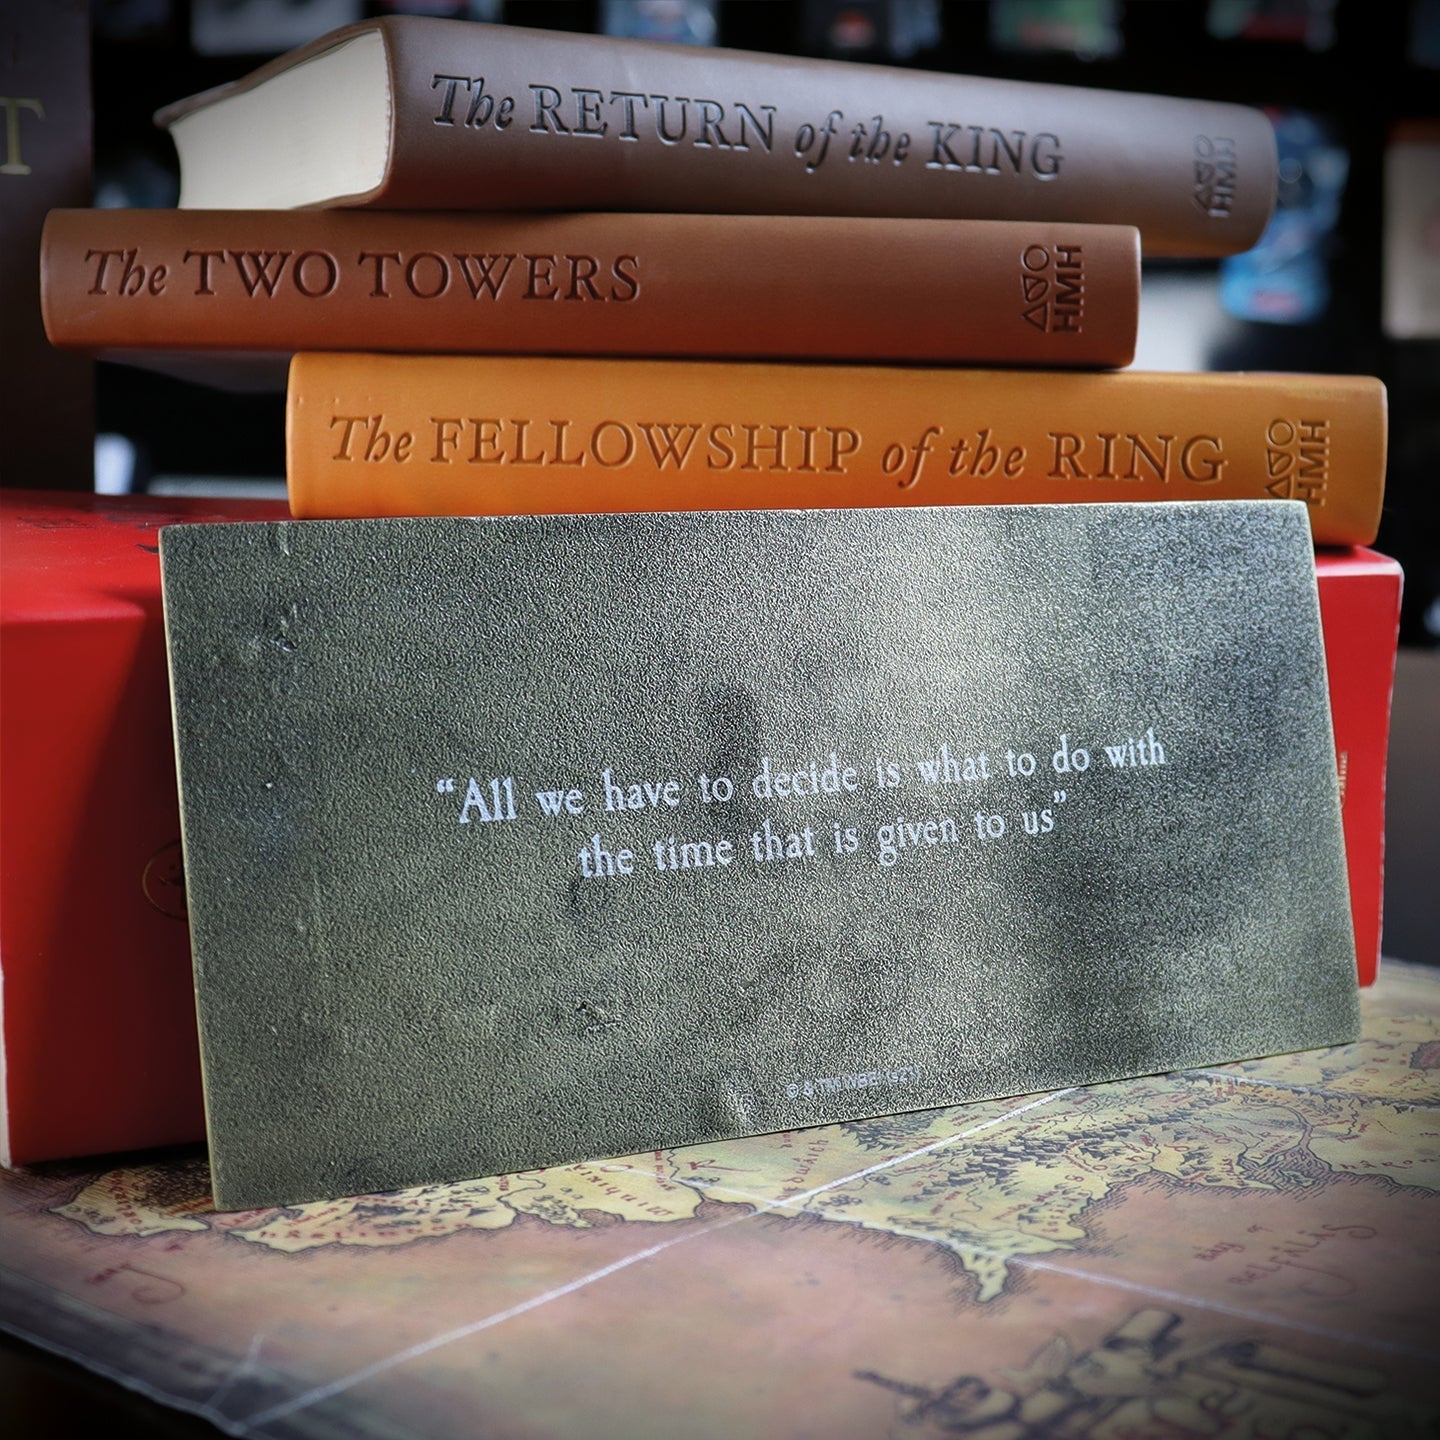 T
The RETURN of the KING
HMH
The TWO TOWERS
HMH
The FELLOWSHIP of the RING
HMH
“All we have to decide is what to do with
the time that is given to us”
Belfalas